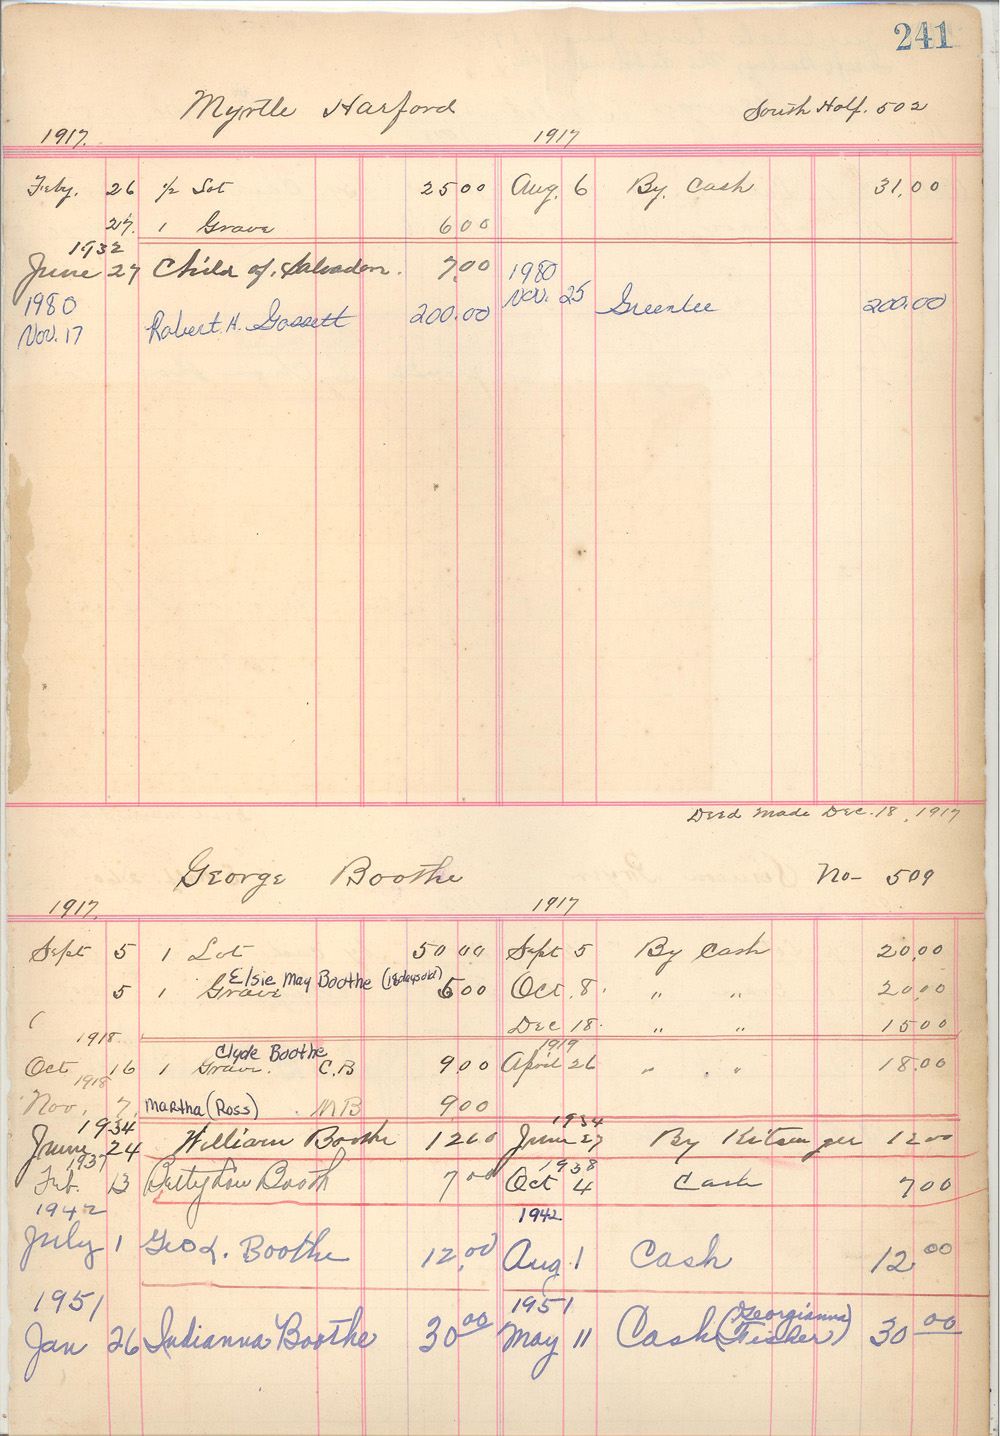 241
Myrtle Harford South Half. 502
1917. 1917
Feby. 26 1/2 Lot 25 00 Aug. 6 By. Cash 31,00
27. 1 Grave 6 00
1932
June 27 Child of. Salvador. 7,00 1980
1980 Nov. 25 Greenlee 200.00
Nov. 17 Robert H. Gossett 200.00
Deed made Dec. 18, 1917
George Boothe No- 509
1917. 1917
Sept 5 1 Lot 50 00 Sept 5 By Cash 20,00
Elsie May Boothe (18 days old)
5 1 Grave 6 00 Oct. 8. " " 20,00
Dec 18. " " 15 00
1918. Clyde Boothe 1919
Oct 16 1 Grave. C.B 9 00 April 26 " " 18.00
1918
Nov. 7. Martha (Ross) . MB 9 00
1934 1934
June 24 William Boothe 12 60 June 27 By Kitsenger 12 00
1937 1938
Feb. 13 Betty Lou Booth 7 00 Oct 4 Cash 7 00
1942 1942
July 1 Geo L. Boothe 12,00 Aug. 1 Cash 12,00
1951 1951
Jan 26 Indianna Boothe 30 00 May 11 Cash (Georgianna Fisher) 30 00